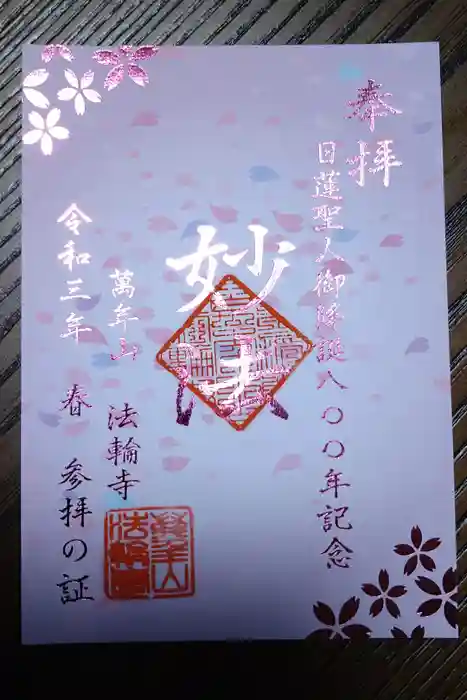 奉拝
日蓮聖人御降誕八〇〇年記念
妙法
萬年山 法輪寺
令和三年 春 参拝の証
萬年山
法輪寺